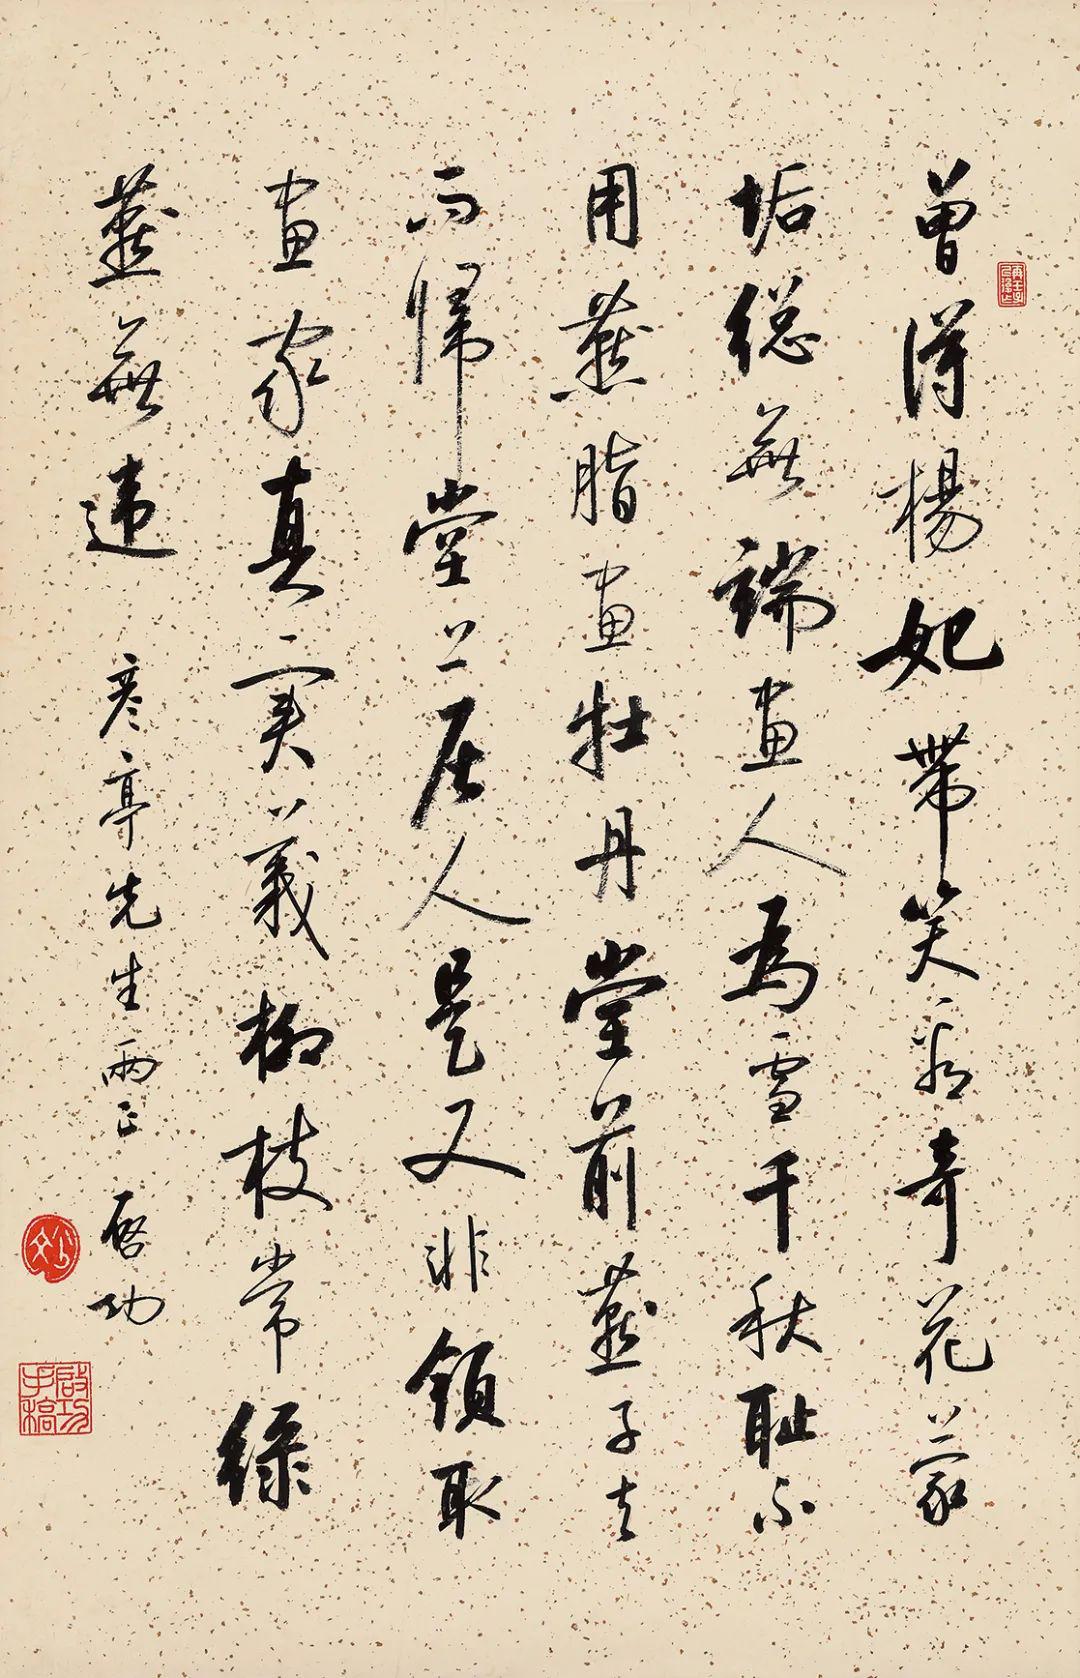 曾得楊妃帶笑看奇花蒙
垢総無端畫人為雪千秋耻不
用燕脂畫牡丹堂前燕子去
而歸堂上居人是又非領取
畫家真実義柳枝常綠
燕無違 彥亭先生兩正 啓功
啟功手稿